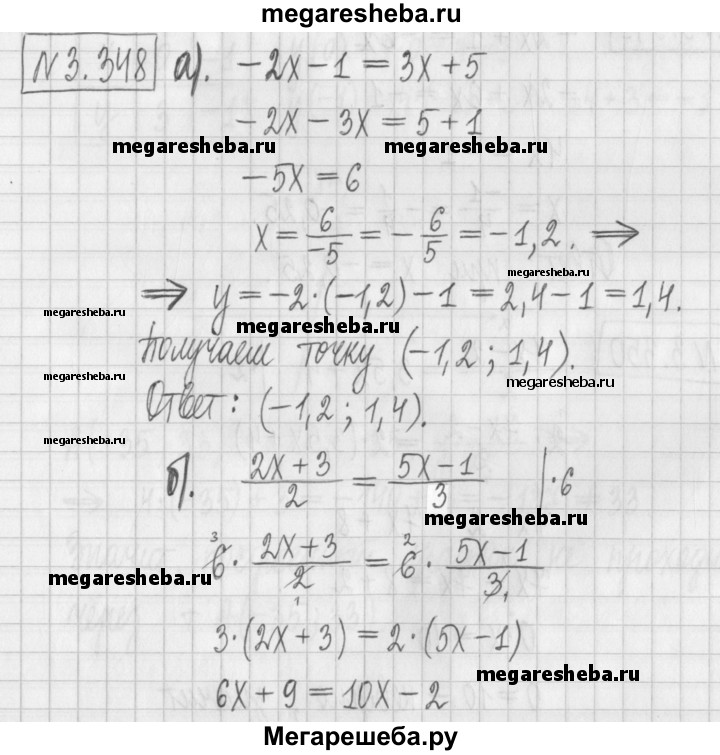 megaresheba.ru
N 3.348 а). -2x - 1 = 3x + 5
-2x - 3x = 5 + 1
megaresheba.ru megaresheba.ru
-5x = 6
x = 6/-5 = -6/5 = -1,2. ⇒
megaresheba.ru
⇒ y = -2·(-1,2) - 1 = 2,4 - 1 = 1,4.
megaresheba.ru megaresheba.ru megaresheba.ru
Получаем точку (-1,2; 1,4).
megaresheba.ru megaresheba.ru
Ответ: (-1,2; 1,4).
megaresheba.ru
б). (2x + 3)/2 = (5x - 1)/3 | ·6
megaresheba.ru
3 6 · (2x + 3)/2 1 = 2 6 · (5x - 1)/3 1
megaresheba.ru
3·(2x + 3) = 2·(5x - 1)
megaresheba.ru
6x + 9 = 10x - 2
Мегарешеба.ру